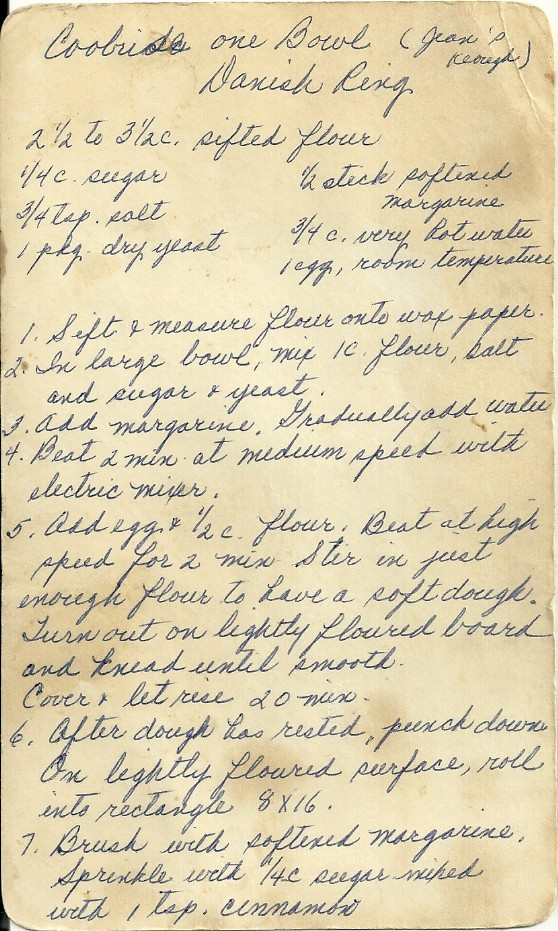 Coolrise one Bowl (Jean's
Keough)
Danish Ring
2 1/2 to 3 1/2 c. sifted flour
1/4 c. sugar
3/4 tsp. salt
1 pkg. dry yeast
1/2 stick softened
margarine
3/4 c. very hot water
1 egg, room temperature
1. Sift & measure flour onto wax paper.
2. In large bowl, mix 1c. flour, salt
and sugar & yeast.
3. Add margarine. Gradually add water
4. Beat 2 min. at medium speed with
electric mixer.
5. Add egg & 1/2 c. flour. Beat at high
speed for 2 min Stir in just
enough flour to have a soft dough.
Turn out on lightly floured board
and knead until smooth.
Cover & let rise 20 min.
6. After dough has rested, punch down
On lightly floured surface, roll
into rectangle 8X16.
7. Brush with softened margarine.
Sprinkle with 1/4c sugar mixed
with 1 tsp. cinnamon